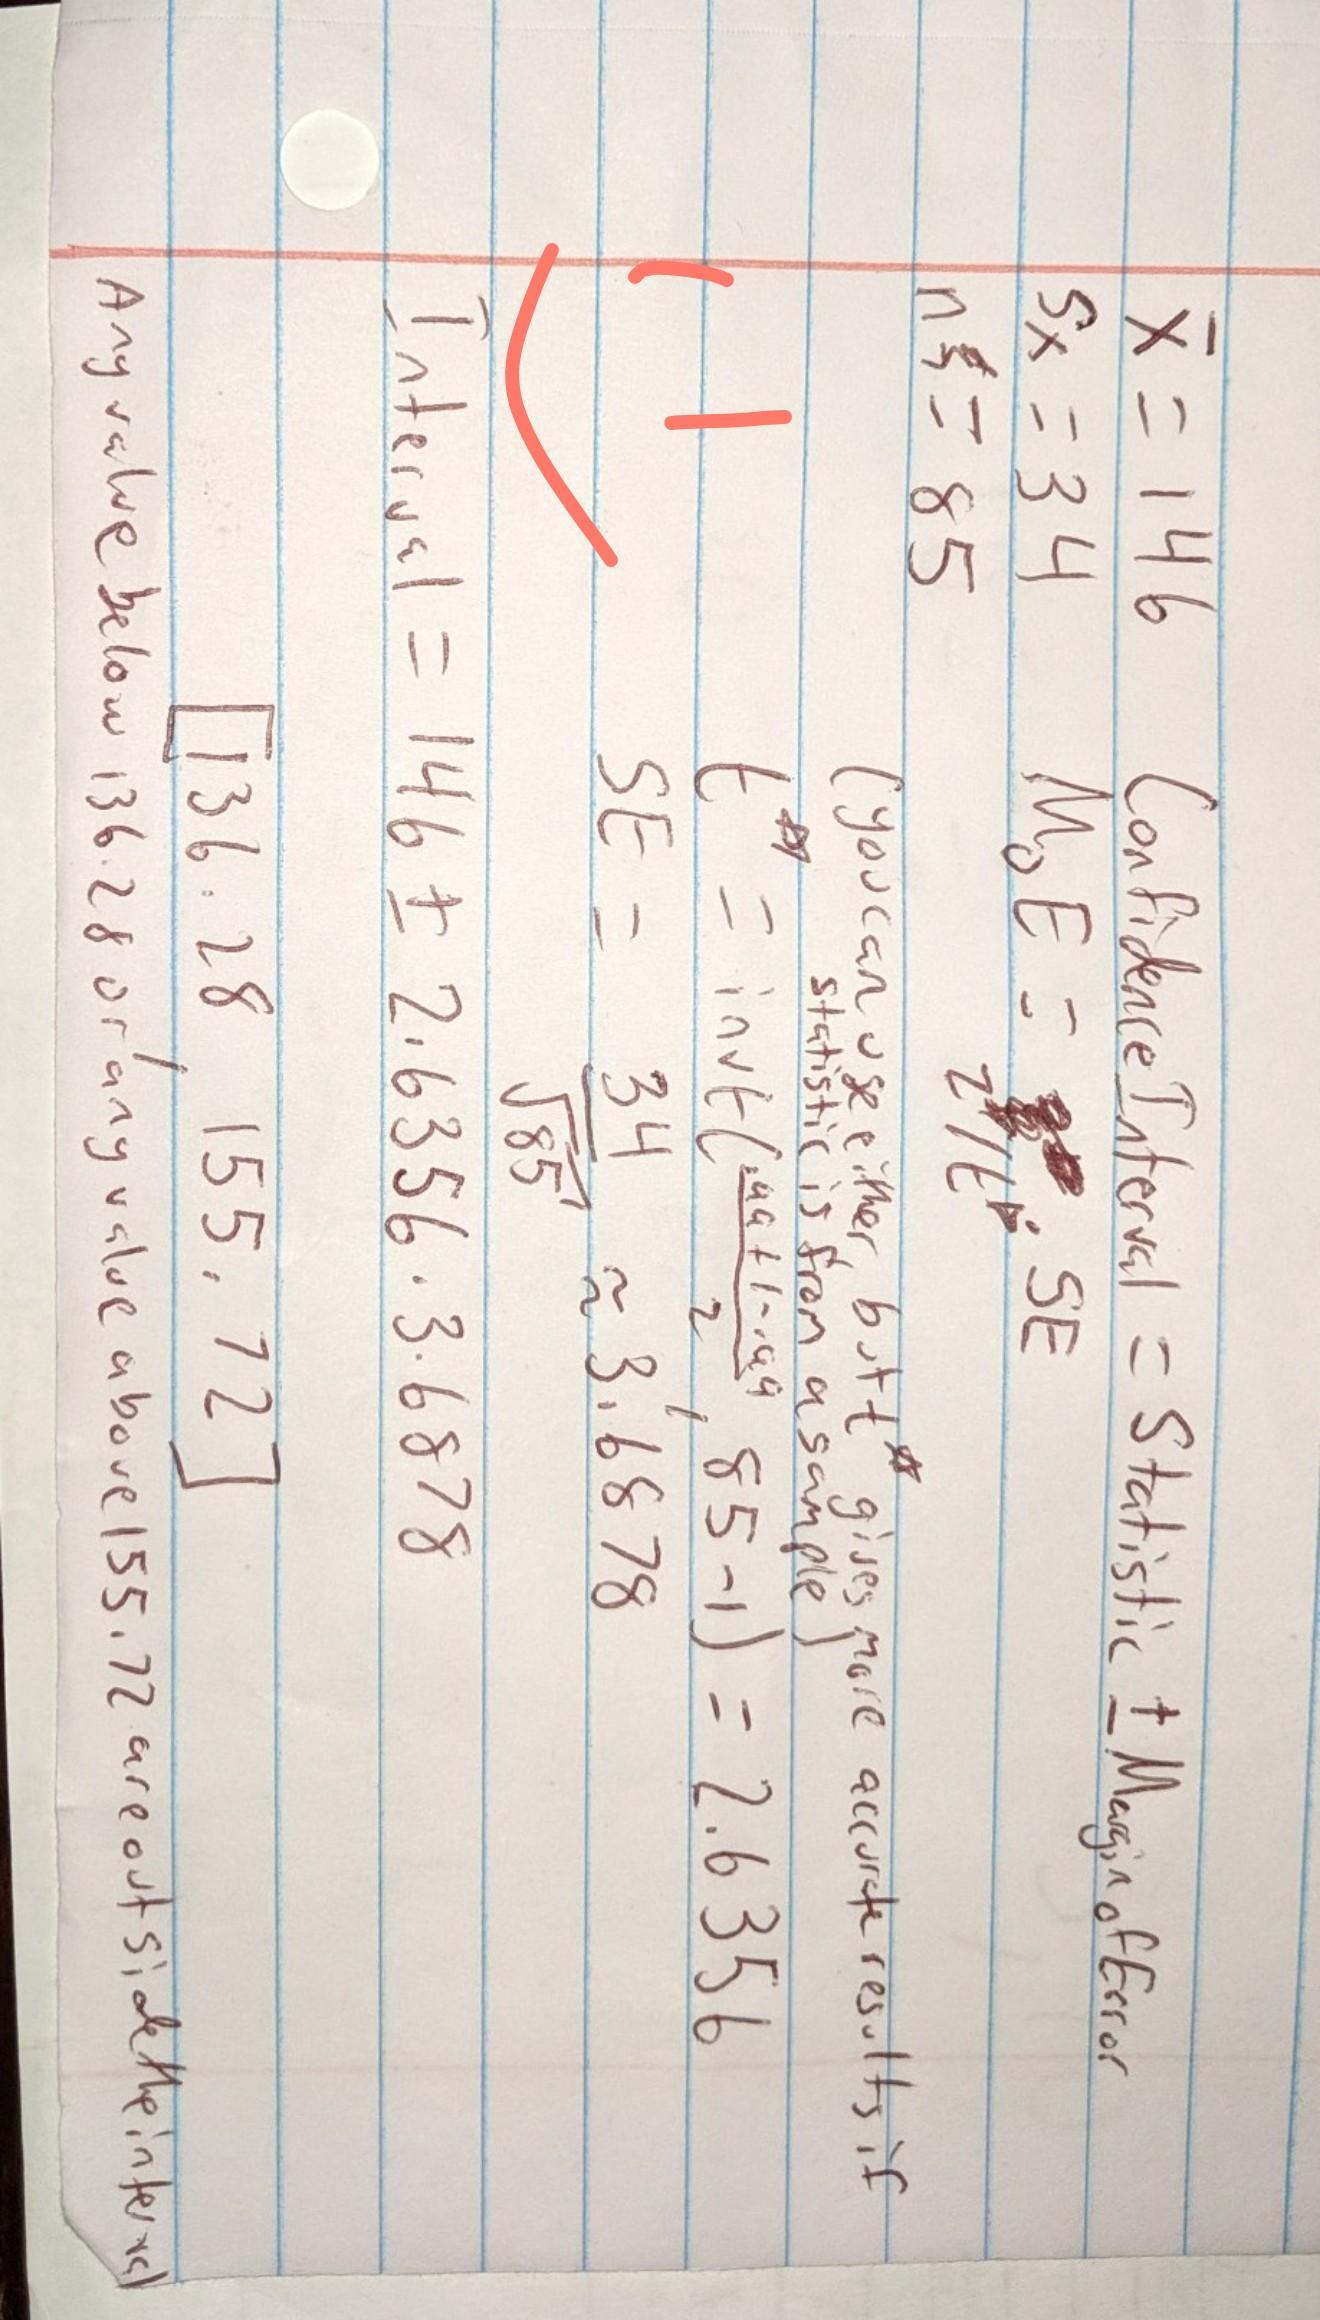 x̄ = 146 Confidence Interval = Statistic ± Margin of Error
Sx = 34 MoE = z*/t* · SE
n = 85
(you can use either, but t* gives more accurate results if
statistic is from a sample)
t* = invt(.99+1-.99/2, 85-1) = 2.6356
SE = 34/√85 ≈ 3.6878
Interval = 146 ± 2.6356 · 3.6878
[136.28, 155.72]
Any value below 136.28 or any value above 155.72 are outside the interval